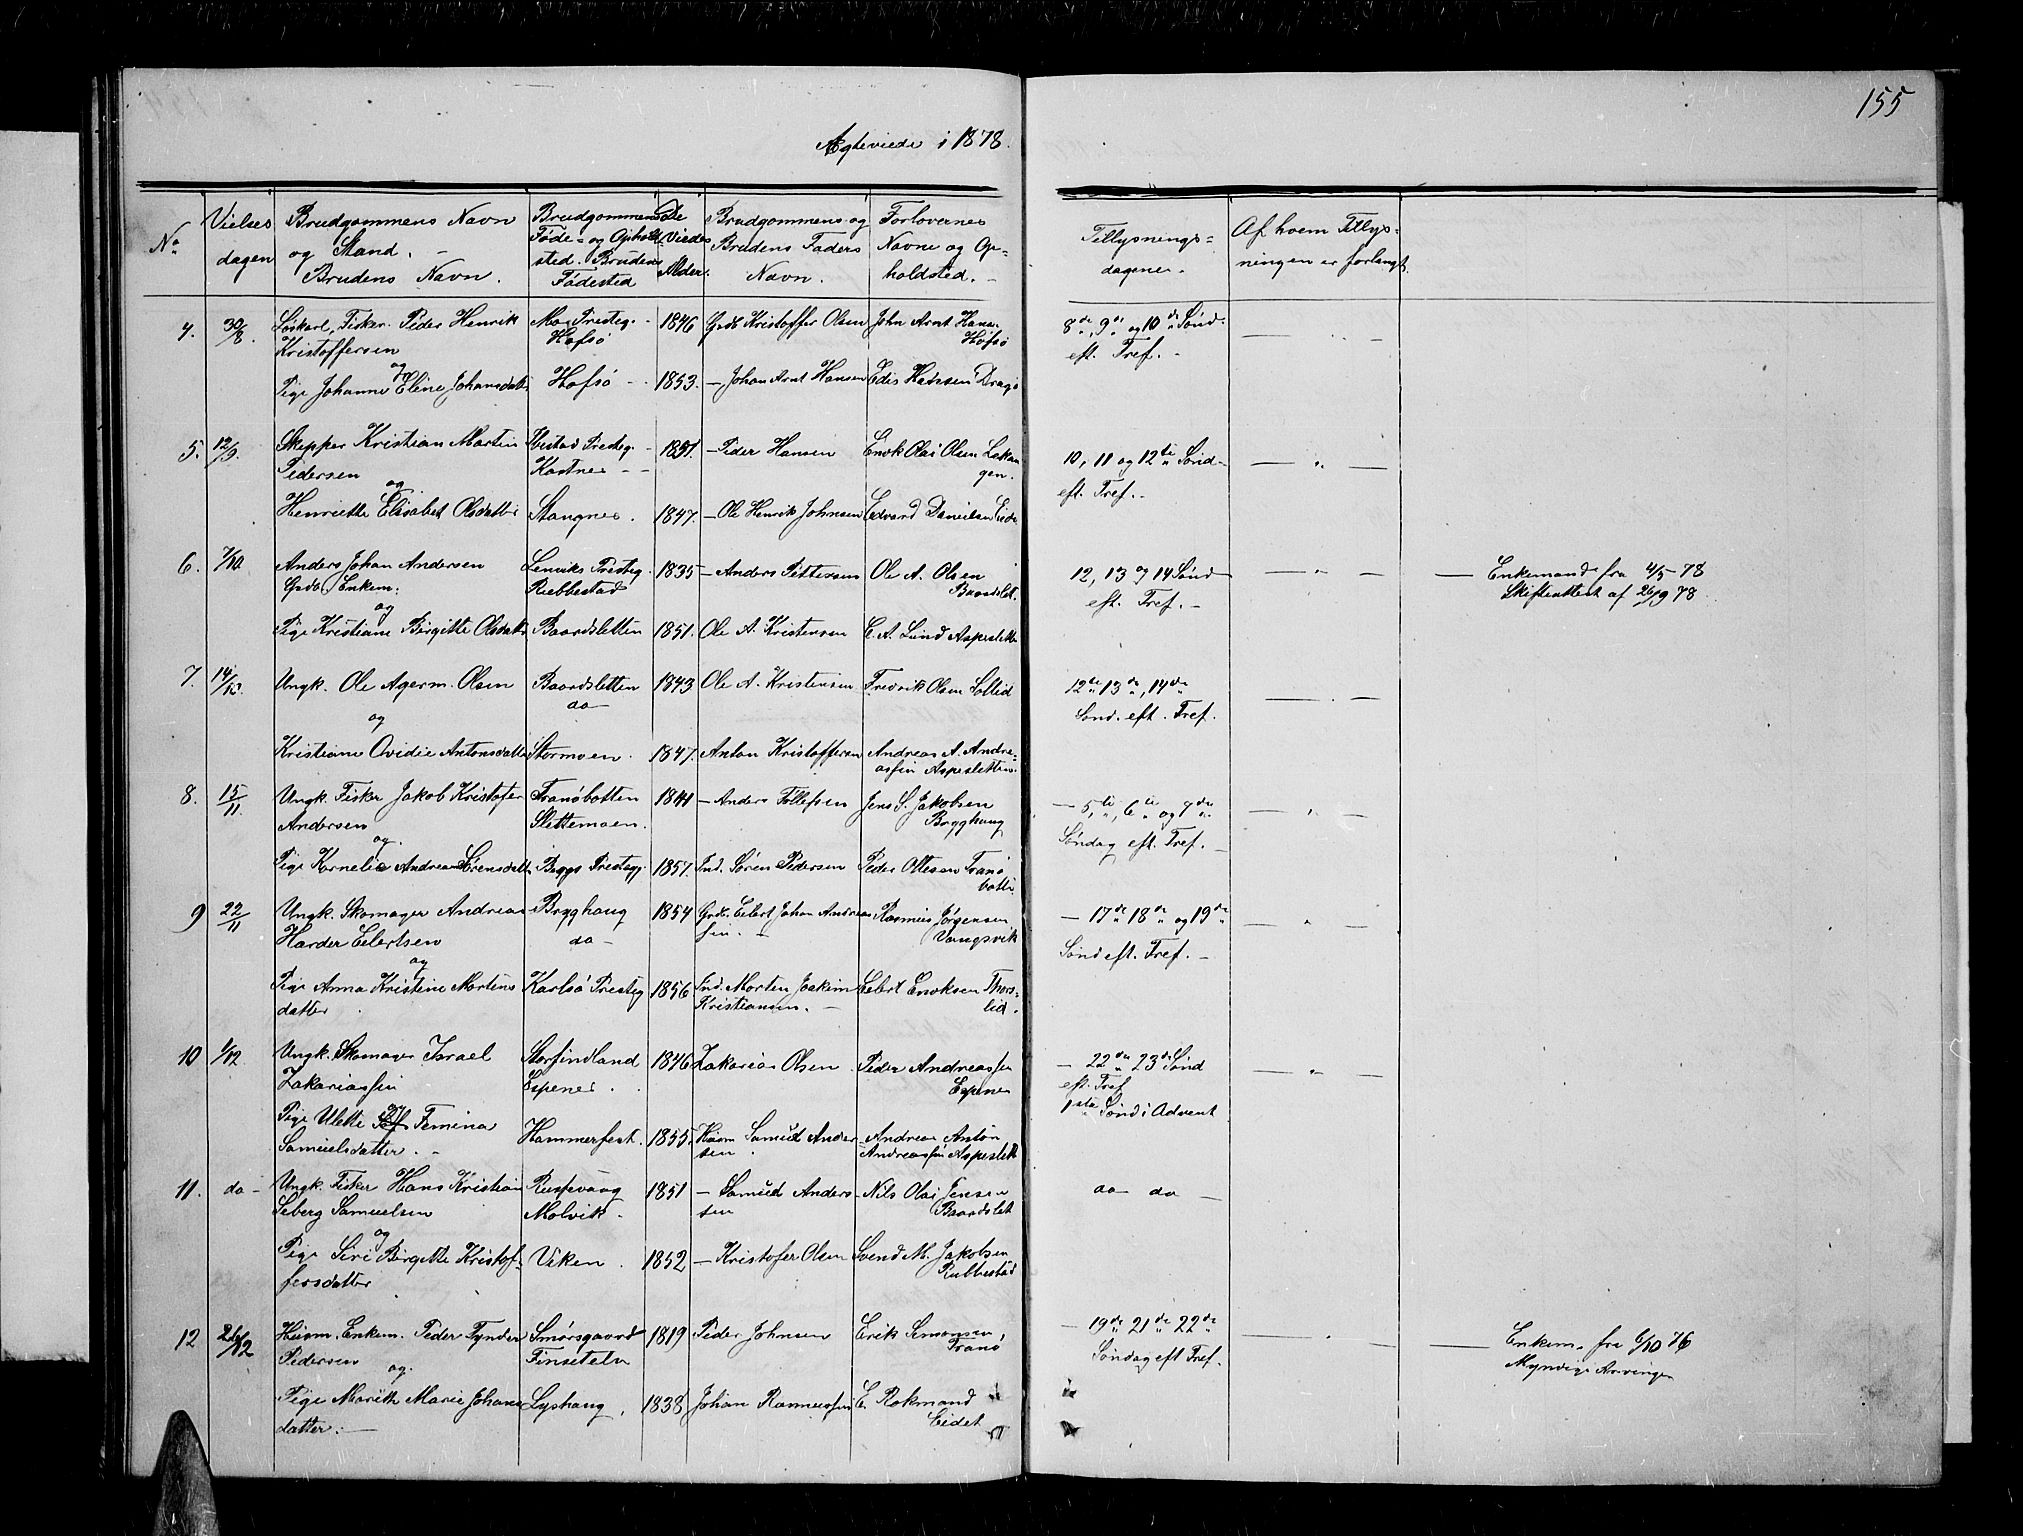 155
Ægteviede i 1878.
No
Vielses
dagen
Brudgommens Navn
og Stand. -
Brudens Navn.
Brudgommens
Føde- og Ophold
sted. Brudens
Fødested
De
Viedes
Alder.
Brudgommens og
Brudens Faders
Navn.
Forlovernes
Navne og Op-
holdsted. -
Tillysnings-
dagene.
Af hvem Tillys-
ningen er forlangt
4. 30/8. Løskarl, Fisker. Peder Henrik Mo Presteg. - 1846 Grdb Kristoffer Olsen John Arnt Hans. 8de, 9de og 10de Sønd.
Kristoffersen Hofsø Hofsø eft. Tref. -
og
Pige Johanne Eline Johansdatt. Hofsø - 1853. - Johan Arnt Hansen Edis Hanssen Dragø
5. 12/9. Skipper Kristian Martin Ibestad Presteg. - 1851. - Peder Hansen Enok Olai Olsen Lekan 10, 11 og 12te Sønd-
Pedersen Kastnes - - gen. eft. Tref. -
og
Henriette Elisabet Olsdatter Stangnes. 1847. - Ole Henrik Johnsen Edvard Danielsen Eide
6. 7/10. Anders Johan Andersen Lenviks Presteg. 1835 - Anders Pettersen Ole A. Olsen 12, 13 og 14 Sønd Enkemand fra 4/5 78
Grdb. Enkem: Rubbestad Baardslet. eft. Tref. - Skifteattest af 26/9 78
og
Pige Kristiane Birgitte Olsdatt. Baardsletten 1851. Ole A. Kristensen E. A. Lund Aspesletten
7. 14/10. Ungk. Ole Agerm. Olsen Baardsletten 1843 Ole A. Kristensen Fredrik Olsen Sollid 12te 13de, 14de
do Sønd. eft. Tref.
og
Kristiane Ovidie Antonsdatter Stormoen. 1847. Anton Kristoffersen Andreas A. Andre-
assen Aspesletten.
8. 15/11. Ungk. Fisker Jakob Kristofer Tranøbotten 1841 - Anders Tollefsen Jens S. Jakobsen - 5te, 6te og 7de
Andersen Slettemoen. Brygghaug Søndag eft. Tref. -
og.
Pige Kornelie Andrea Sørensdatt. Presteg. 1857. Ind. Søren Pedersen Peder Ottesen Tranø
botn.
9 22/11 Ungk. Skomager Andreas Brygghaug 1854 Grdb. Eilert Johan Andreas Rasmus Jørgensen - 17de 18de og 19de
Harder Eilertsen do - sen. - Vangsvik Sønd eft. Tref. -
og
Pige Anna Kristine Mortens Karlsø Presteg 1856 Ind. Morten Joakim Eilert Enoksen Thors-
datter Kristiansen. - lid.
10 1/12. Ungk. Skomager Israel Storfindland 1846 Zakarias Olsen Peder Andreassen - 22de 23de Sønd
Zakariassen Espenes. Espenes eft. Tref
1ste Sønd i Advent
Pige Ulette Femina Hammerfest. 1855. Husm Samuel Ander- Andreas Anton
Samuelsdatter. - sen. Andreassen Aspeslett
11. do - Ungk. Fisker Hans Kristian Russevaag 1851 - Samuel Anders- Nils Olai Jensen do do -
Seberg Samuelsen Molvik. sen Baardslet
og
Pige Siri Birgitte Kristof- Viken. 1852 - Kristofer Olsen Svend M. Jakobsen
fersdatter Rubbestad
12 26/12 Husm. Enkem. Peder Tynder Smørsgaard 1819 Peder Johnsen Erik Simonsen, - 19de 21de 22de Enkem. fra 6/10 76
Pedersen Finsæteln Tranø Søndag eft Tref. Myndige Arvinger
og.
Pige Marith Marie Johans Lyshaug. 1838 Johan Rasmussen E. Rokmand
datter. - Eidet